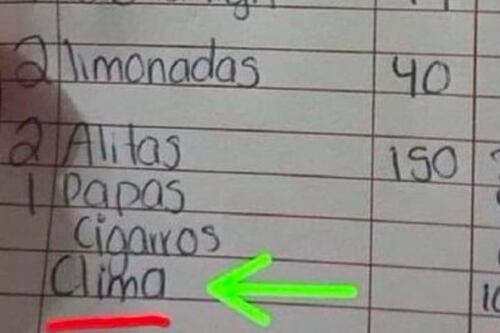 2 limonadas 40
2 Alitas 150
1 papas
Cigarros
Clima